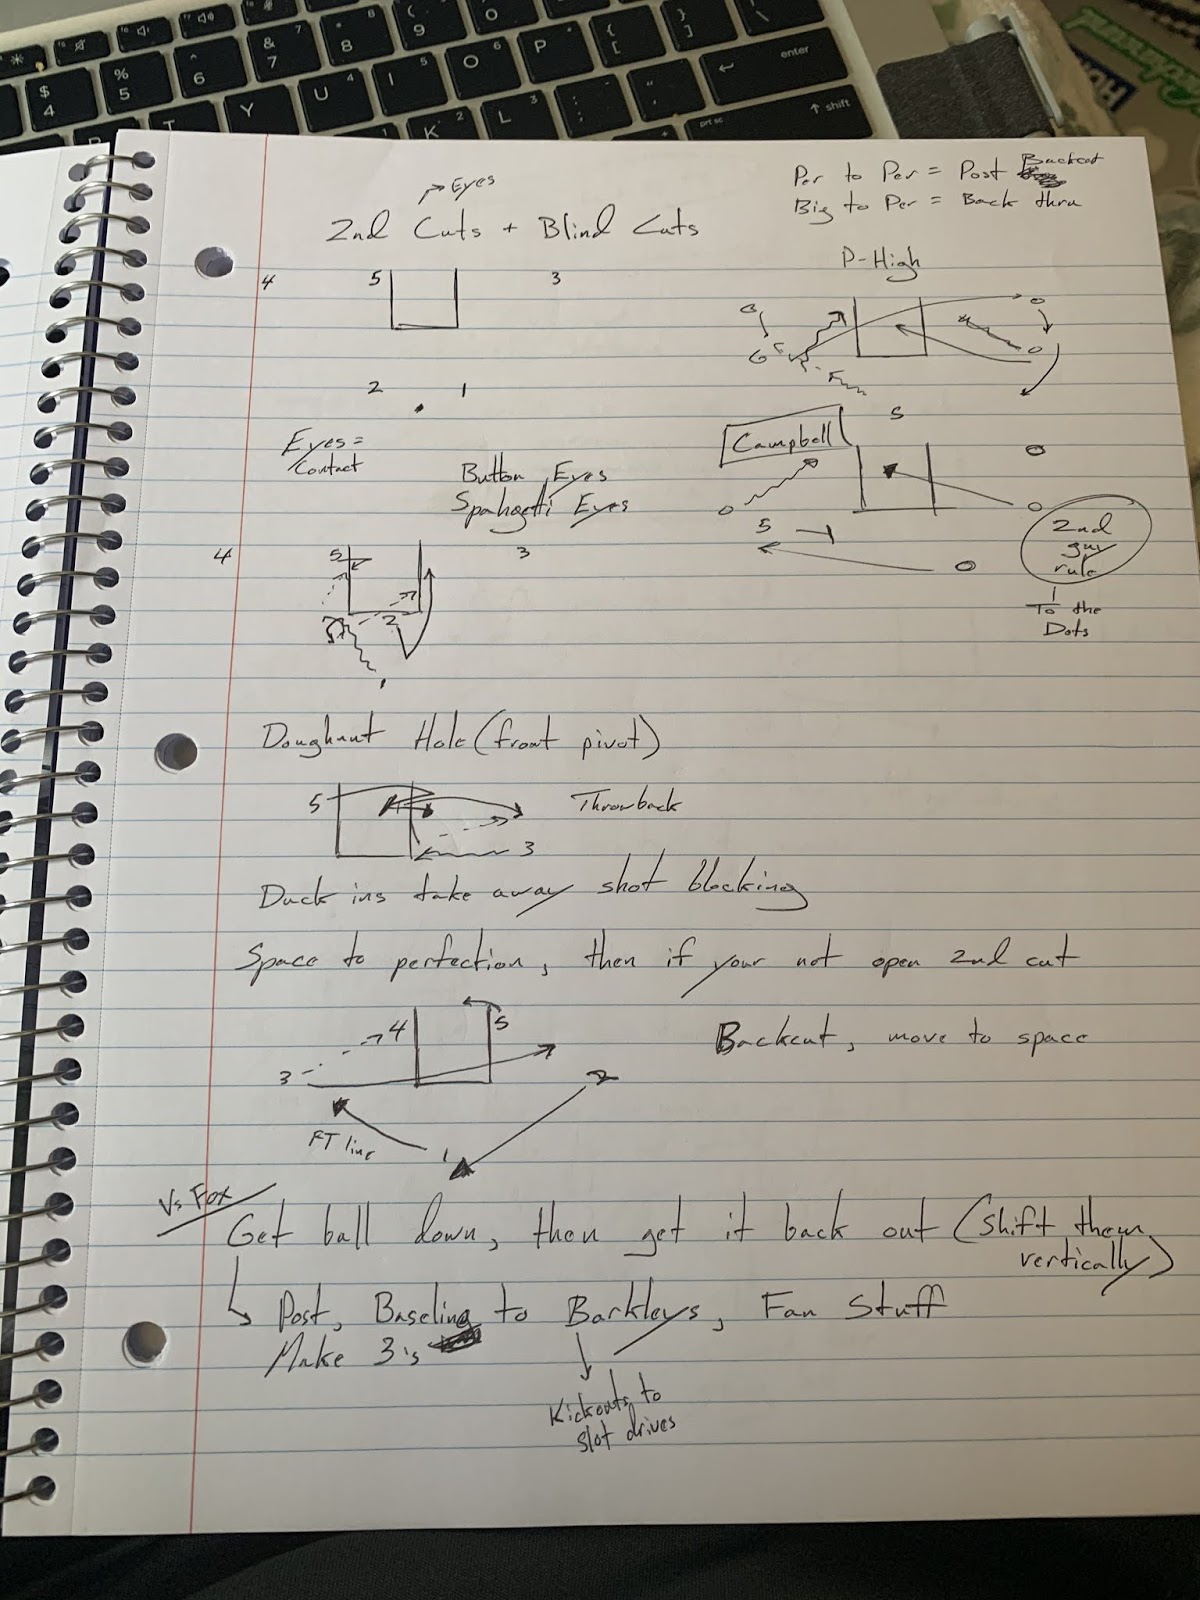 * $ 4 % 5 6 & 7 7 8 8 ( 9 9 O { [ } ] | \ enter
Y U 4 I 5 O 6 P : ; " ' ↑ shift
K 2 L 3 prt sc
→ Eyes
2nd Cuts + Blind Cuts
Per to Per = Post Backcut
Big to Per = Back thru
4 5 3
2 1
P-High
Eyes =
Contact
Button Eyes
Spahgetti Eyes
Campbell
5
5
2nd
guy
rule
To the
Dots
4 5 3
2
Doughnut Hole (front pivot)
5 Throwback
3
Duck ins take away shot blocking
Space to perfection, then if your not open 2nd cut
4 5
3 2
FT line 1
Backcut, move to space
Vs Fox
Get ball down, then get it back out (shift them
vertically)
Post, Baseling to Barkleys, Fan Stuff
Make 3's
Kickouts to
slot drives